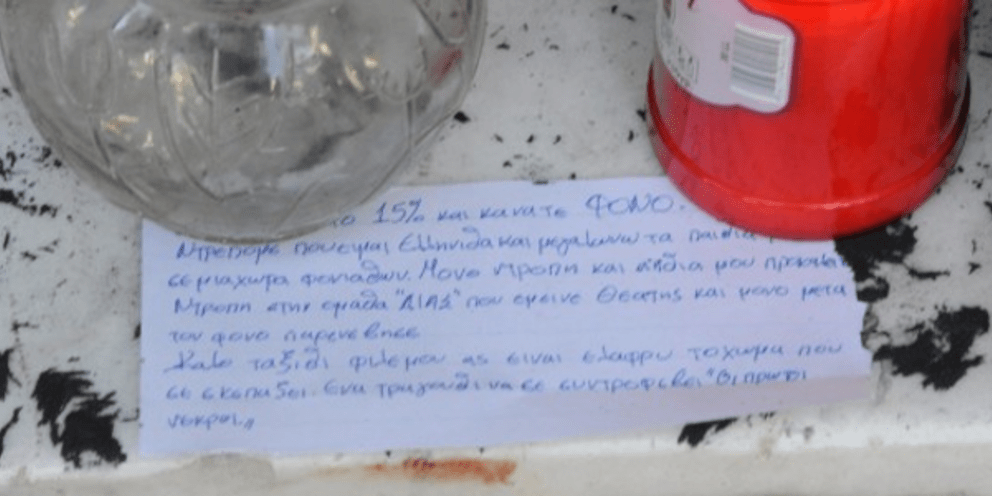 το 15% και κανατε ΦΟΝΟ.
Ντρεπομε που ειμαι Ελληνιδα και μεγαλωνω τα παιδια
σε μια χωρα φονιαδων. Μονο ντροπη και αηδια μου προκαλει
Ντροπη στην ομαδα "ΔΙΑΣ" που εμεινε Θεατης και μονο μετα
τον φονο παρενεβησε
Καλο ταξιδι φιλε μου ας ειναι ελαφρυ το χωμα που
σε σκεπαζει. Ενα τραγουδι να σε συντροφευει "Οι πρωτοι
νεκροι"